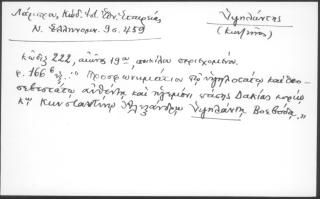 Λάμπρου, Κώδ. Ιστ. Εθν. Εταιρείας
Ν. Ελληνομν. 9 σ. 459
Υψηλάντης
(Κων/τῖνος)
Κῶδιξ 222, αἰῶνος 19ου, ποικίλου περιεχομένου.
φ. 166β κἑ. "Προσφωνημάτιον τῷ ὑψηλοτάτῳ καὶ θεο-
σεβεστάτῳ αὐθέντῃ καὶ ἡγεμόνι πάσης Δακίας κυρίῳ
κῳ Κωνσταντίνῳ Ἀλεξάνδρου Ὑψηλάντῃ Βοεβόδᾳ."